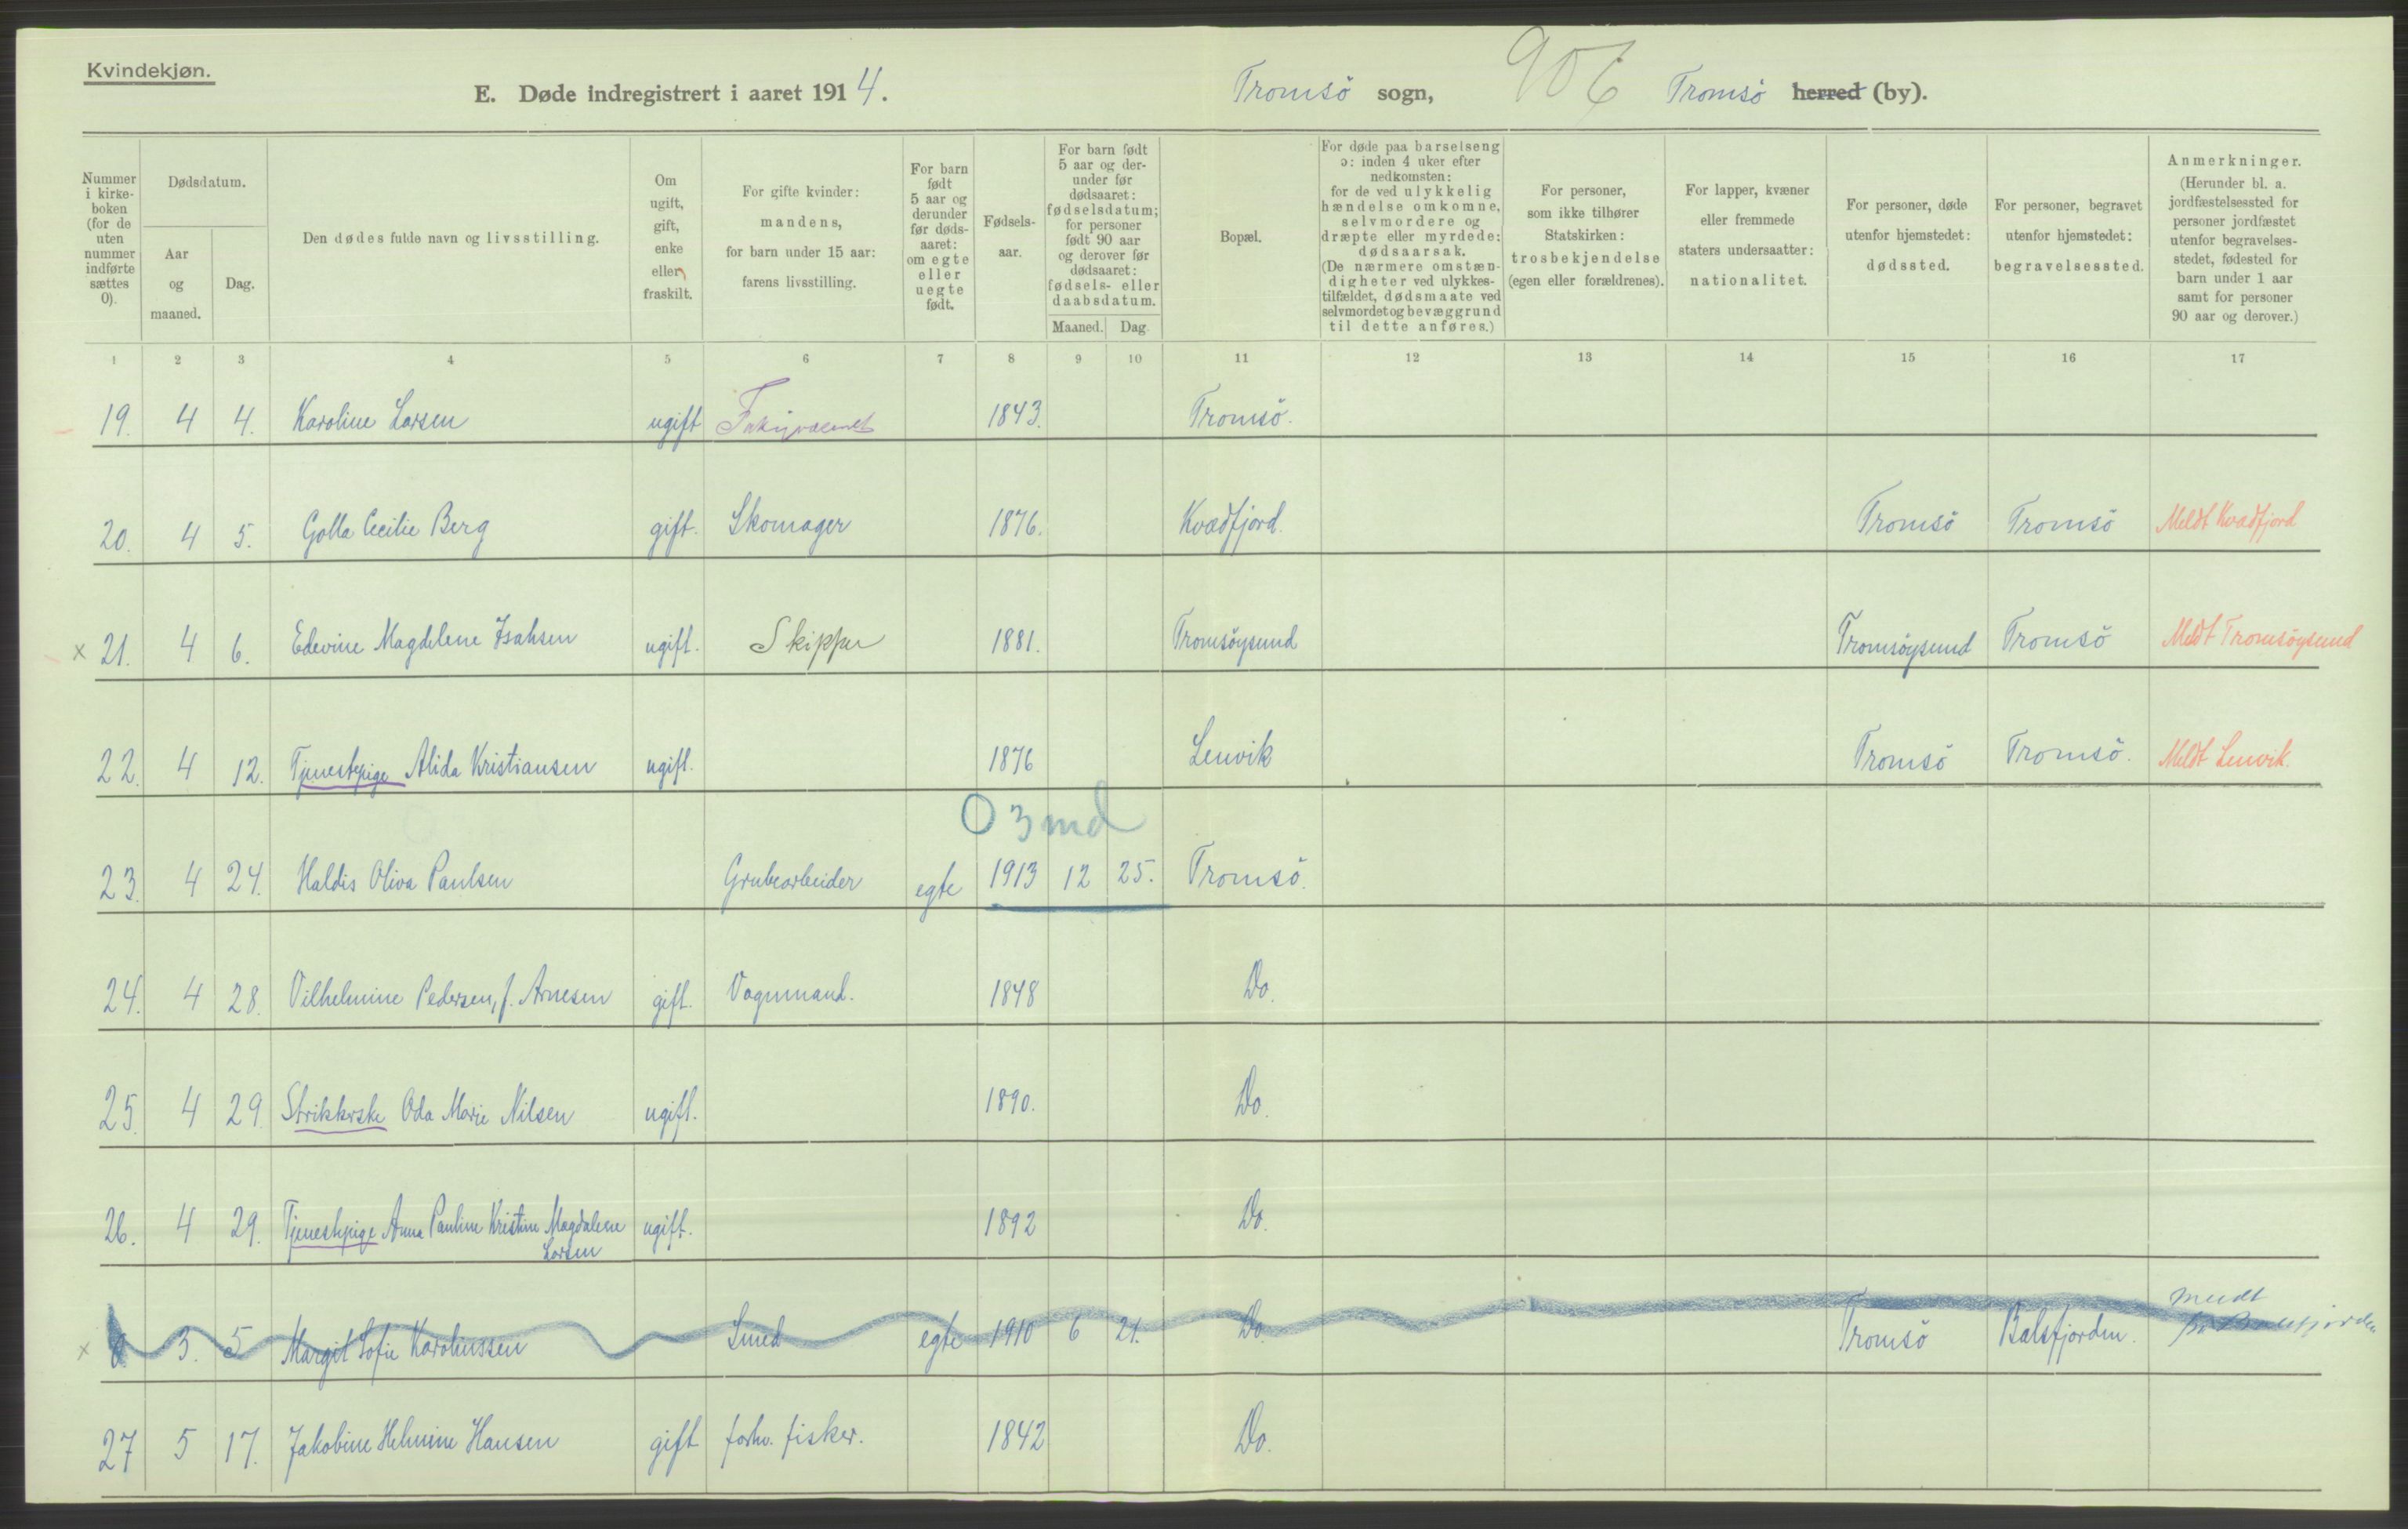 Kvindekjøn.
E. Døde indregistrert i aaret 1914.
Tromsö sogn,
906
Tromsö herred (by).
Nummer i kirke-boken (for de uten nummer indførte sættes 0).
Dødsdatum.
Aar og maaned.
Dag.
Den dødes fulde navn og livsstilling.
Om ugift, gift, enke eller fraskilt.
For gifte kvinder: mandens, for barn under 15 aar: farens livsstilling.
For barn født 5 aar og derunder før døds-aaret: om egte eller uegte født.
Fødsels-aar.
For barn født 5 aar og der-under før dødsaaret: fødselsdatum; for personer født 90 aar og derover før dødsaaret: fødsels- eller daabsdatum.
Maaned.
Dag.
Bopæl.
For døde paa barselseng ɔ: inden 4 uker efter nedkomsten: for de ved ulykkelig hændelse omkomne, selvmordere og dræpte eller myrdede: dødsaarsak. (De nærmere omstæn-digheter ved ulykkes-tilfældet, dødsmaate ved selvmordet og bevæggrund til dette anføres.)
For personer, som ikke tilhører Statskirken: trosbekjendelse (egen eller forældrenes).
For lapper, kvæner eller fremmede staters undersaatter: nationalitet.
For personer, døde utenfor hjemstedet: dødssted.
For personer, begravet utenfor hjemstedet: begravelsessted.
Anmerkninger. (Herunder bl. a. jordfæstelsessted for personer jordfæstet utenfor begravelses-stedet, fødested for barn under 1 aar samt for personer 90 aar og derover.)
1 2 3 4 5 6 7 8 9 10 11 12 13 14 15 16 17
19. 4 4. Karoline Larsen ugift 1843. Tromsö.
20. 4 5. Golla Cecilie Berg gift. Skomager 1876. Kvædfjord. Tromsö Tromsö Meldt Kvædfjord
x 21. 4 6. Edevine Magdelene Isaksen ugift. Skipper 1881. Tromsöysund Tromsöysund Tromsö Meldt Tromsöysund
22. 4 12. Tjenestepige Alida Kristiansen ugift. 1876 Lenvik Tromsö Tromsö. Meldt Lenvik.
0 3 md
23. 4 24. Haldis Oliva Paulsen Grubearbeider egte 1913 12 25. Tromsö.
24. 4 28. Vilhelmine Pedersen, f. Arnesen gift. Vognmand. 1848 Do.
25. 4 29. Strikkerske Oda Marie Nilsen ugift. 1890. Do.
26. 4 29. Tjenestepige Anna Pauline Kristine Magdalene ugift. 1892 Do.
Larsen
x 0. 3. 5 Margit Sofie Karoliussen Smed egte 1910 6 21. Do. Tromsö Balsfjorden. meldt
Balsfjorden
27 5 17. Jakobine Helmine Hansen gift forhv. fisker. 1842 Do.